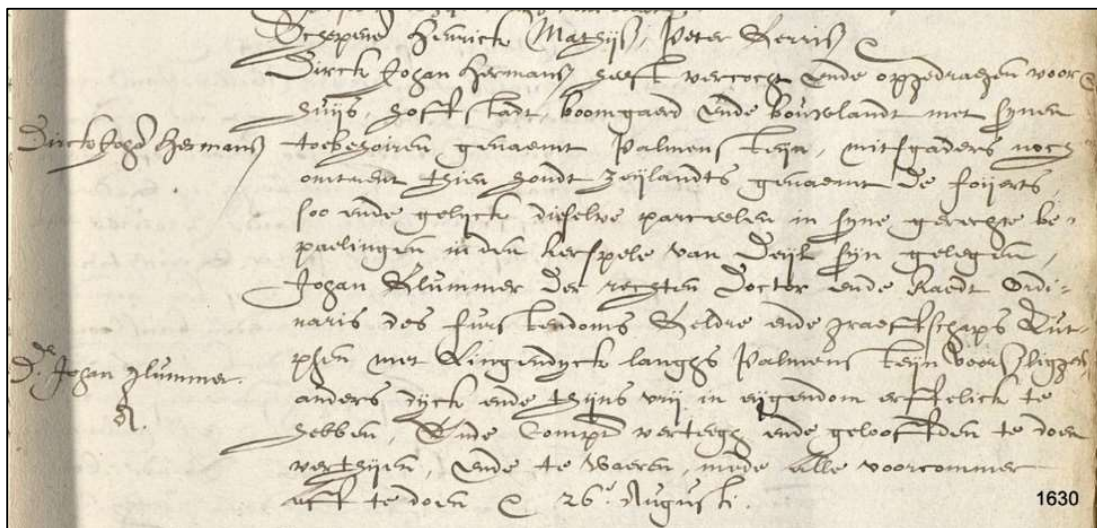 Schepenen Henrick Mathijs, Peter Gerris
Dirck Johan Hermans heeft vercocht ende opgedragen voor
Dirck Joha Hermans
huijs, hoffstadt, boomgaerd ende bouwlandt met synen
toebehoiren genaemt Palmensteijn, mitsgaders noch
omtrent thien hondt weijlandts genaemt de
soo ende gelyck dieselve parceelen in syne gerechte be-
paelingen in den kerspele van Deijl syn gelegen,
Johan Glummer der rechten Doctor ende Raedt Ordi-
naris des furstendoms Geldre ende graeffschaps Zut-
D. Johan Glummer.
phen met Lingendyck langhs Palmensteijn voors. liggen
anders dyck ende thyns vrij in eijgendom erffelick te
hebben, Ende Comp. verteegh ende geloeffden te doen
verthijen, ende te waeren, mede alle voorcommer
aff te doen 26 Augusti.
1630